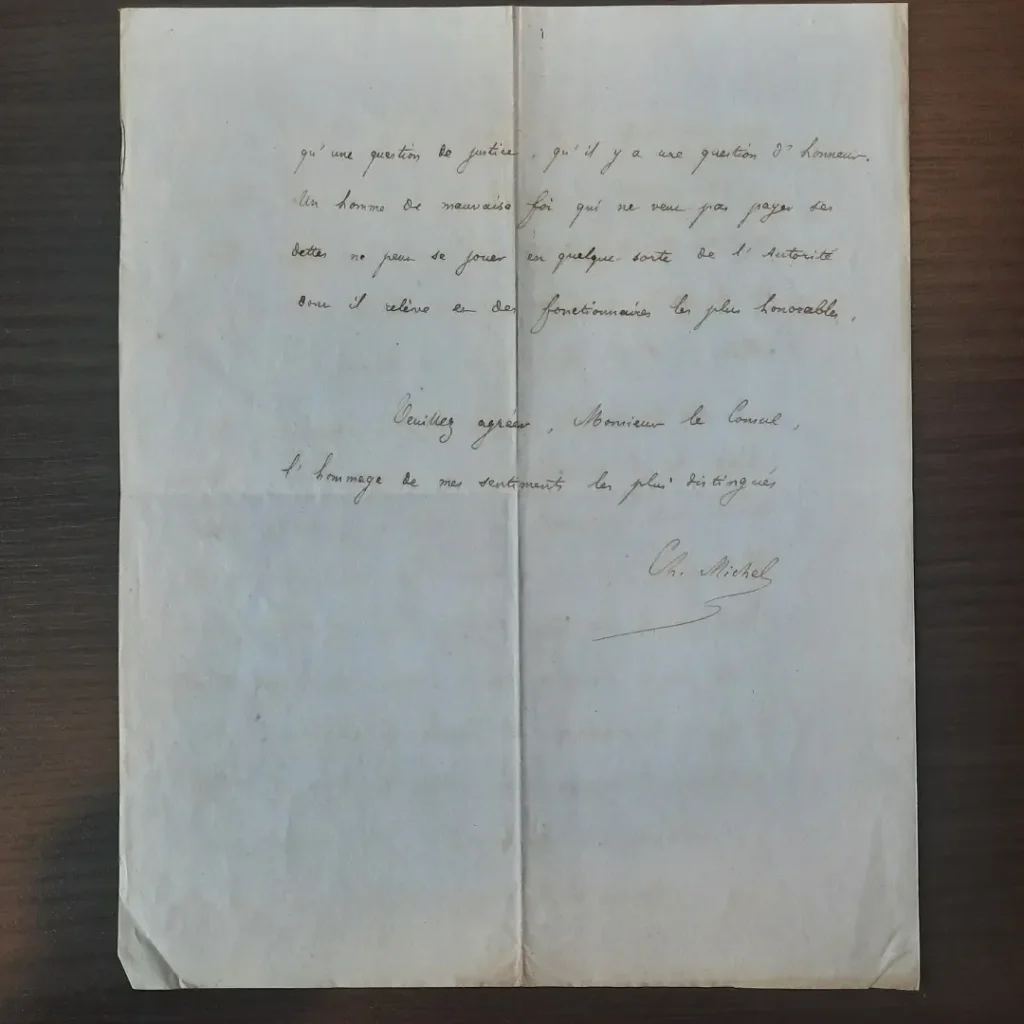 qu'une question de justice, qu'il y a une question d'honneur.
Un homme de mauvaise foi qui ne veut pas payer ses
dettes ne peut se jouer en quelque sorte de l'Autorité
dont il relève et des fonctionnaires les plus honorables.
Veuillez agréer, Monsieur le Consul,
l'hommage de mes sentiments les plus distingués
Ch. Michel